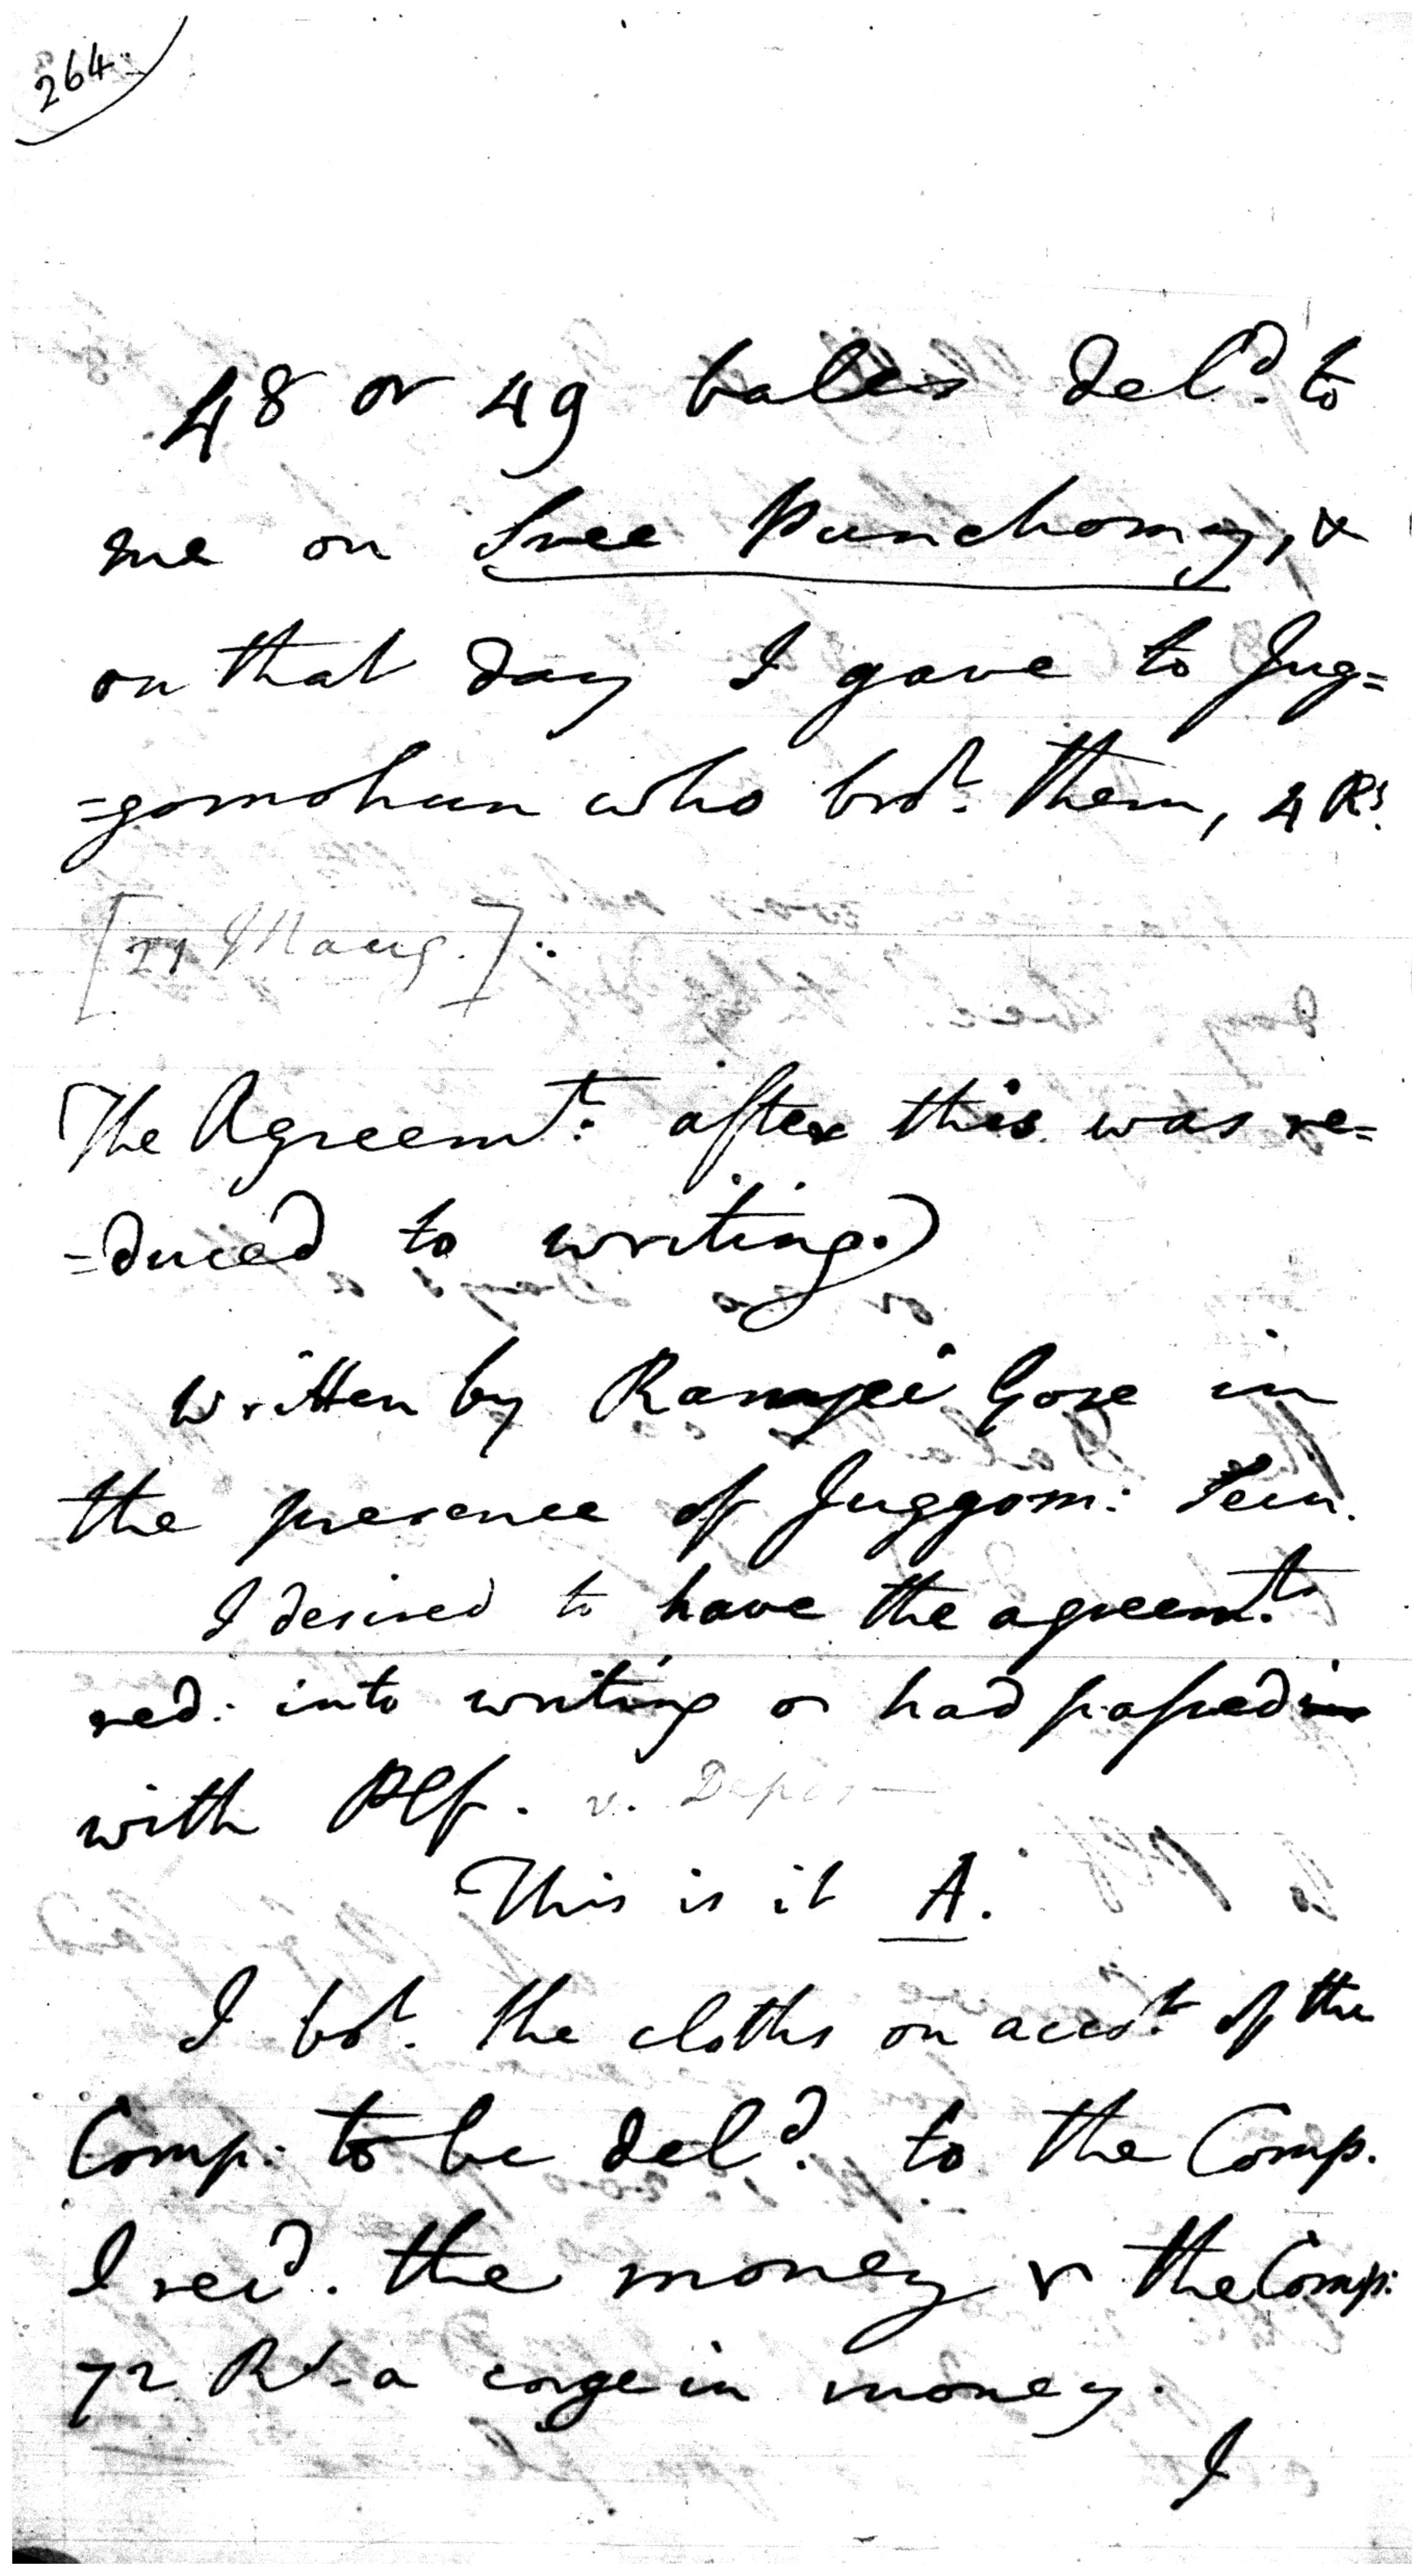 264
48 or 49 bales del^d. to
me on Sree Punchomy, &
on that day I gave to Jug=
=gomohun who bro^t. them, 4 R^s.
[21 Maug.]
The Agreem^t: after this was re=
=duced to writing.)
Written by Ramjei Gose in
the presence of Juggom: Sein.
I desired to have the agreem^t.
red: into writing or had passed
with Plf. v. Depos
This is it A.
I bo^t. the cloths on acco^t. of the
Comp: to be del^d. to the Comp.
I rec^d. the money & the Comp:
72 R^s. a corge in money.
I